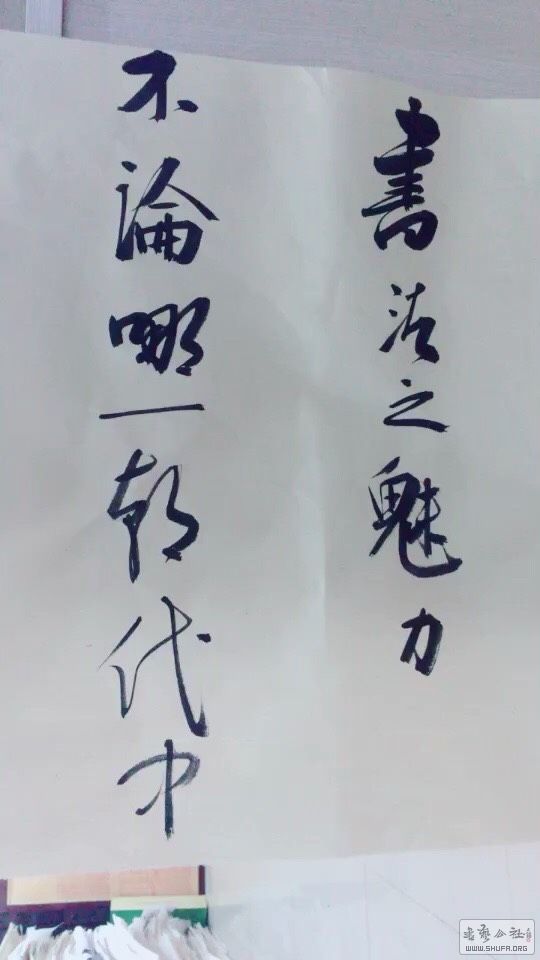 書法之魅力
不論哪一朝代中
书艺公社
WWW.SHUFA.ORG